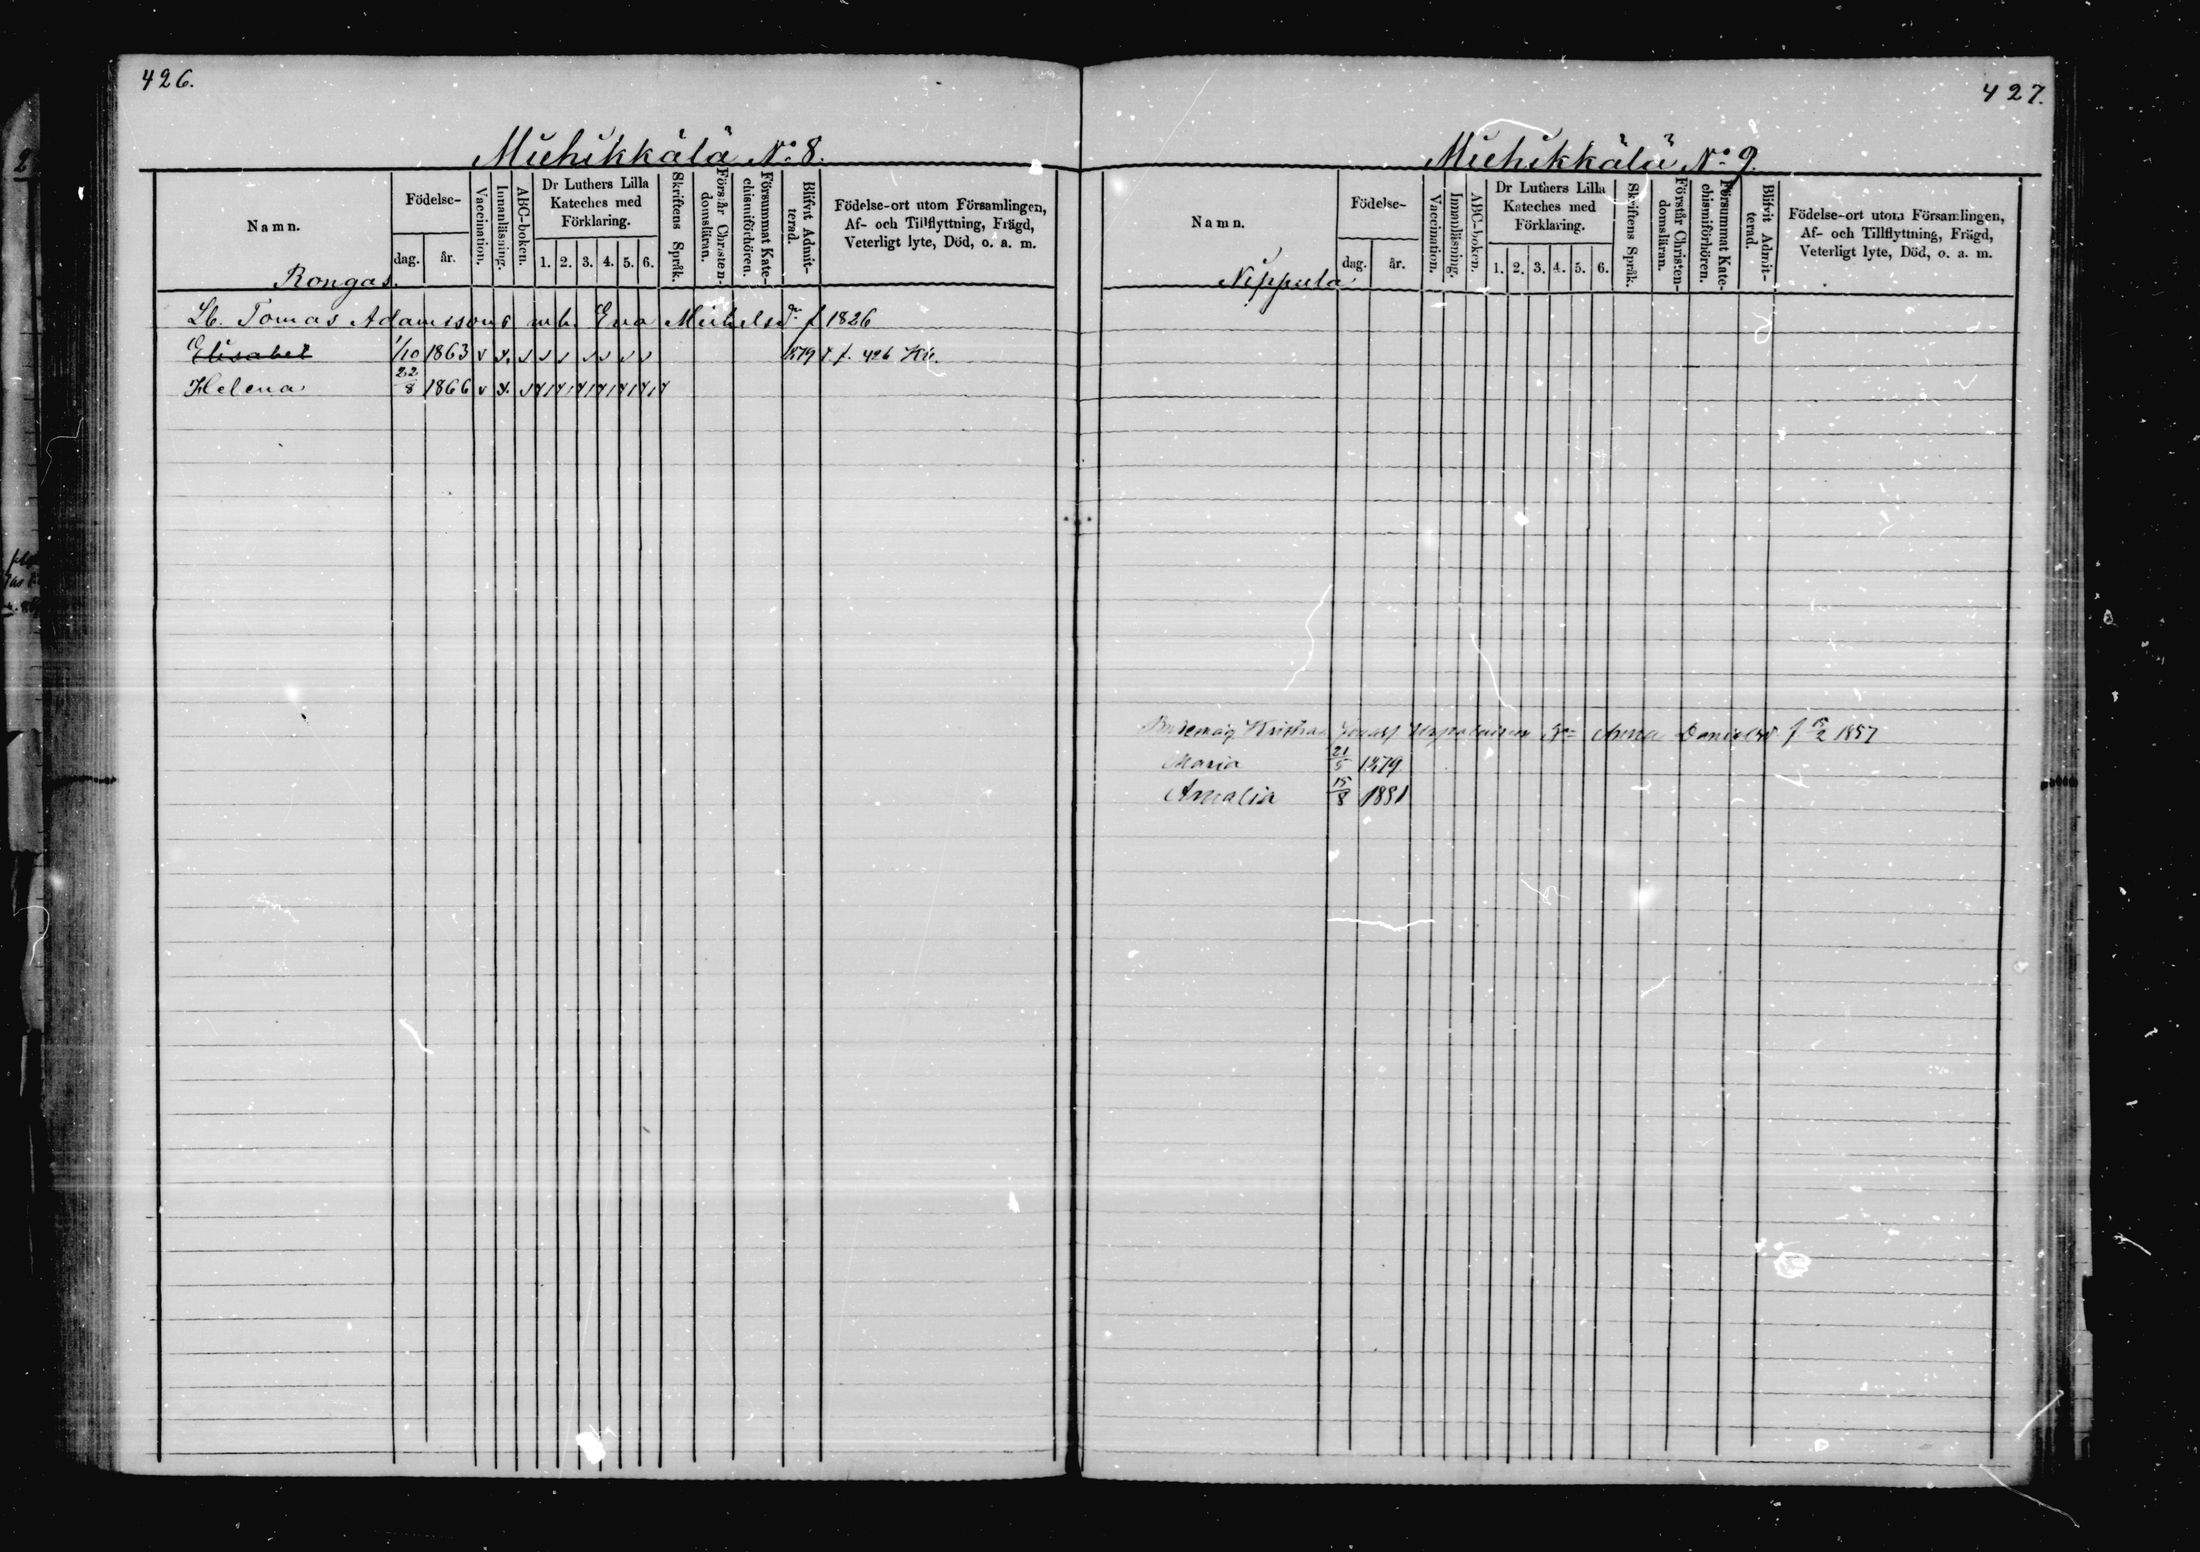 426.
Miehikkälä No: 8.
Namn.
Födelse-
dag.
år.
Vaccination.
Innanläsning.
ABC-boken.
Dr Luthers Lilla Kateches med Förklaring.
1. 2. 3. 4. 5. 6.
Skriftens Språk.
Förstår Christendomsläran.
Försummat Katechismiförhören.
Blifvit Admitterad.
Födelse-ort utom Församlingen,
Af- och Tillflyttning, Frägd,
Veterligt lyte, Död, o. a. m.
Rongas.
Lb. Tomas Adamssons Eva Michelsdr f 1826
Elisabet 1/10 1863 426
Helena 22/8 1866
427.
Miehikkälä No: 9.
Namn.
Födelse-
dag.
år.
Vaccination.
Innanläsning.
ABC-boken.
Dr Luthers Lilla
Kateches med
Förklaring.
1. 2. 3. 4. 5. 6.
Skriftens Språk.
Förstår Christendomsläran.
Försummat Katechismiförhören.
Blifvit Admitterad.
Födelse-ort utom Församlingen,
Af- och Tillflyttning, Frägd,
Veterligt lyte, Död, o. a. m.
Nippula
Anna f 1857
Maria 21/5 1879
Amalia 15/8 1881